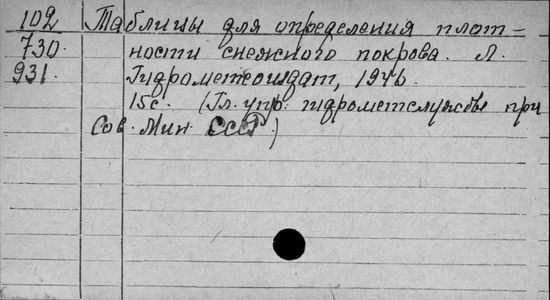 102 Таблицы для определения плот-
730. ности снежного покрова. Л.
931. Гидрометеоиздат, 1946.
15с. (Гл. упр. гидрометслужбы при
Сов. Мин. СССР.)